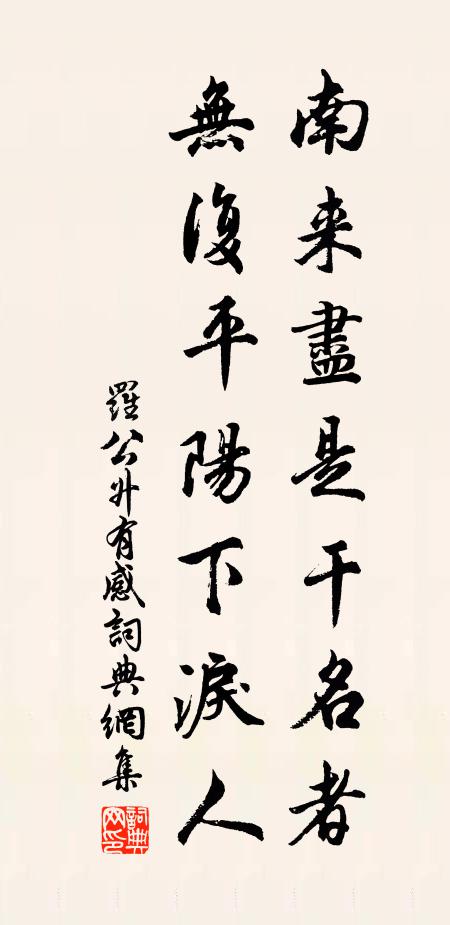 南来盡是干名者
無復平陽下淚人
羅公升有感詞典網集
詞典网印